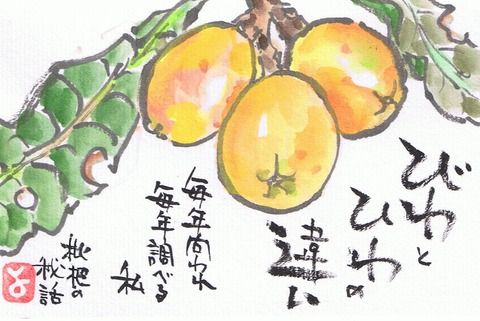 びわと
ひわの
違い
毎年向われ
毎年調べる
私
枇杷の
秘話
と